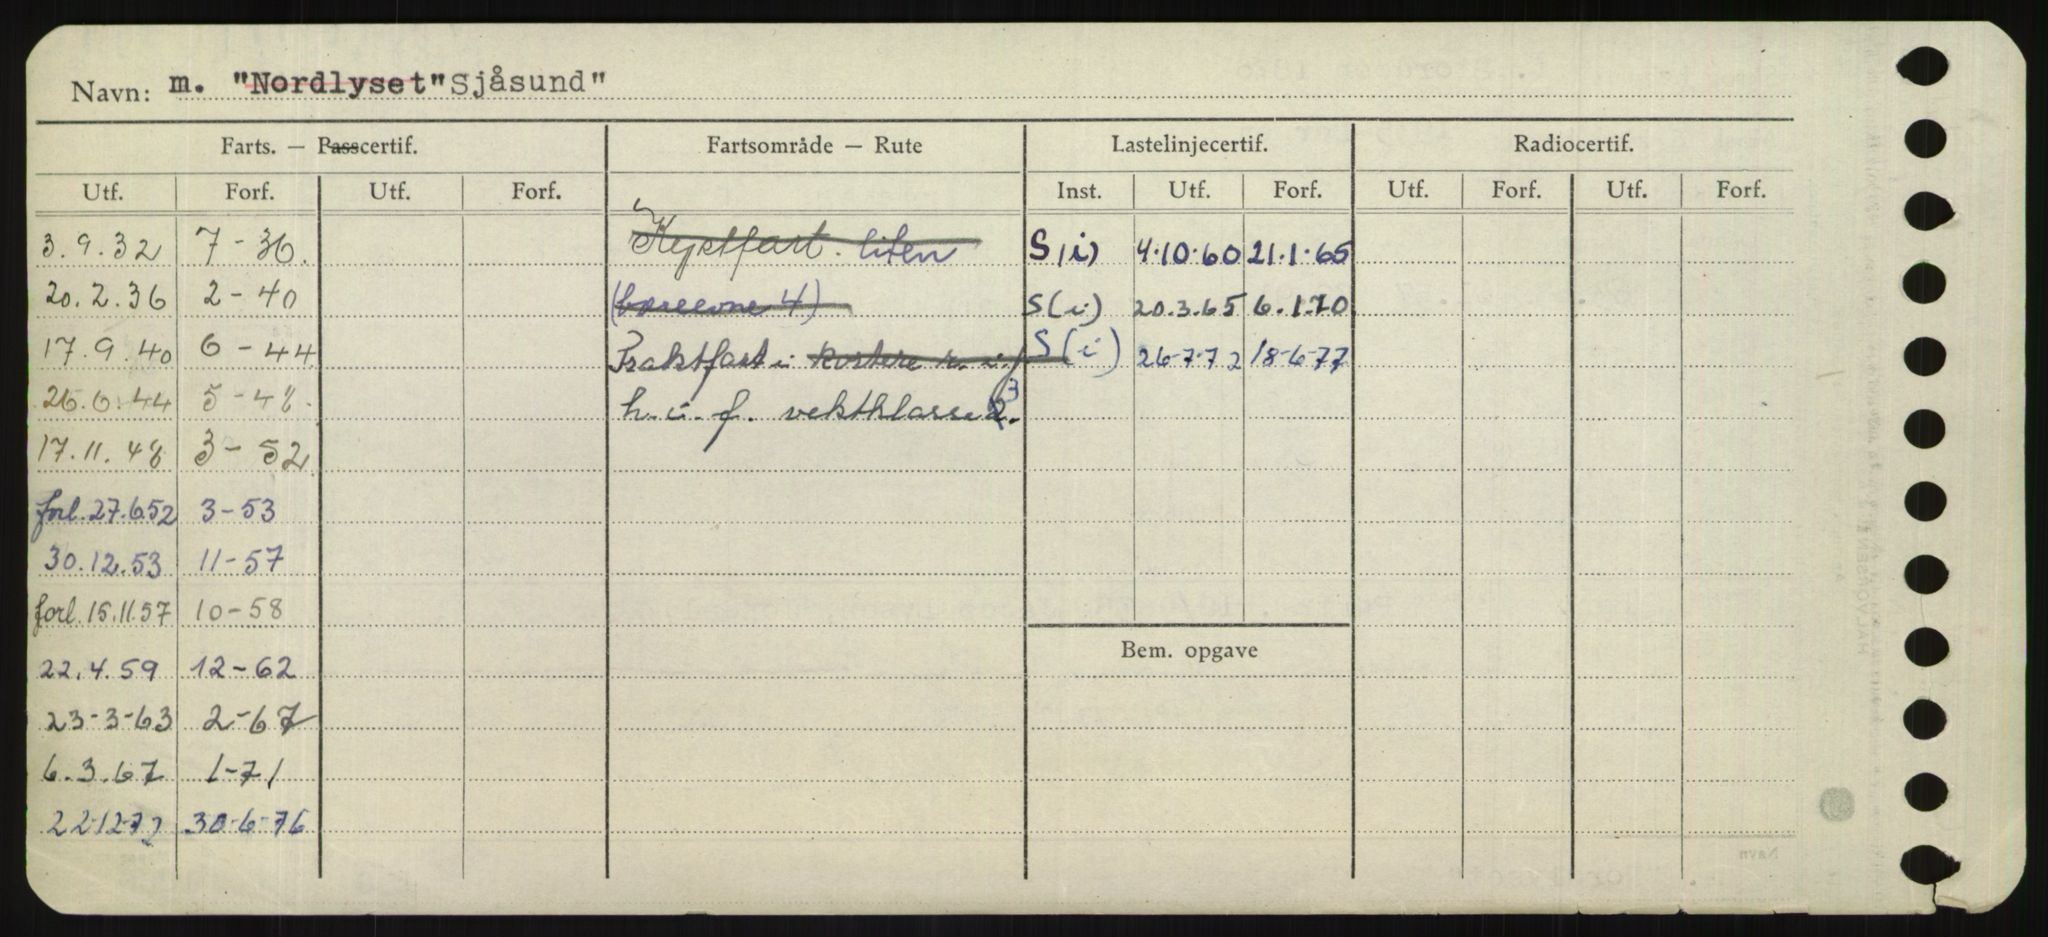 Navn: m. "Nordlyset" Sjåsund"
Farts. — Passcertif. Fartsområde — Rute Lastelinjecertif. Radiocertif.
Utf. Forf. Utf. Forf. Inst. Utf. Forf. Utf. Forf. Utf. Forf.
3.9.32 7-36. Kystfart. liten S(i) 4.10.60 21.1.65
20.2.36 2-40 (bæreevne 4) S(i) 20.3.65 6.1.70
17.9.40 6-44 Fraktfart i kystere S(i) 26-7-72 18-6-77
26.6.44 5-48. h.i.f. vektklasse 2. 3
17.11.48 3-52
forl. 27.6.52 3-53
30.12.53 11-57
forl. 15.11.57 10-58
Bem. opgave
22.4.59 12-62
23-3-63 2-67
6.3.67 1-71
22-12-72 30-6-76
Navn